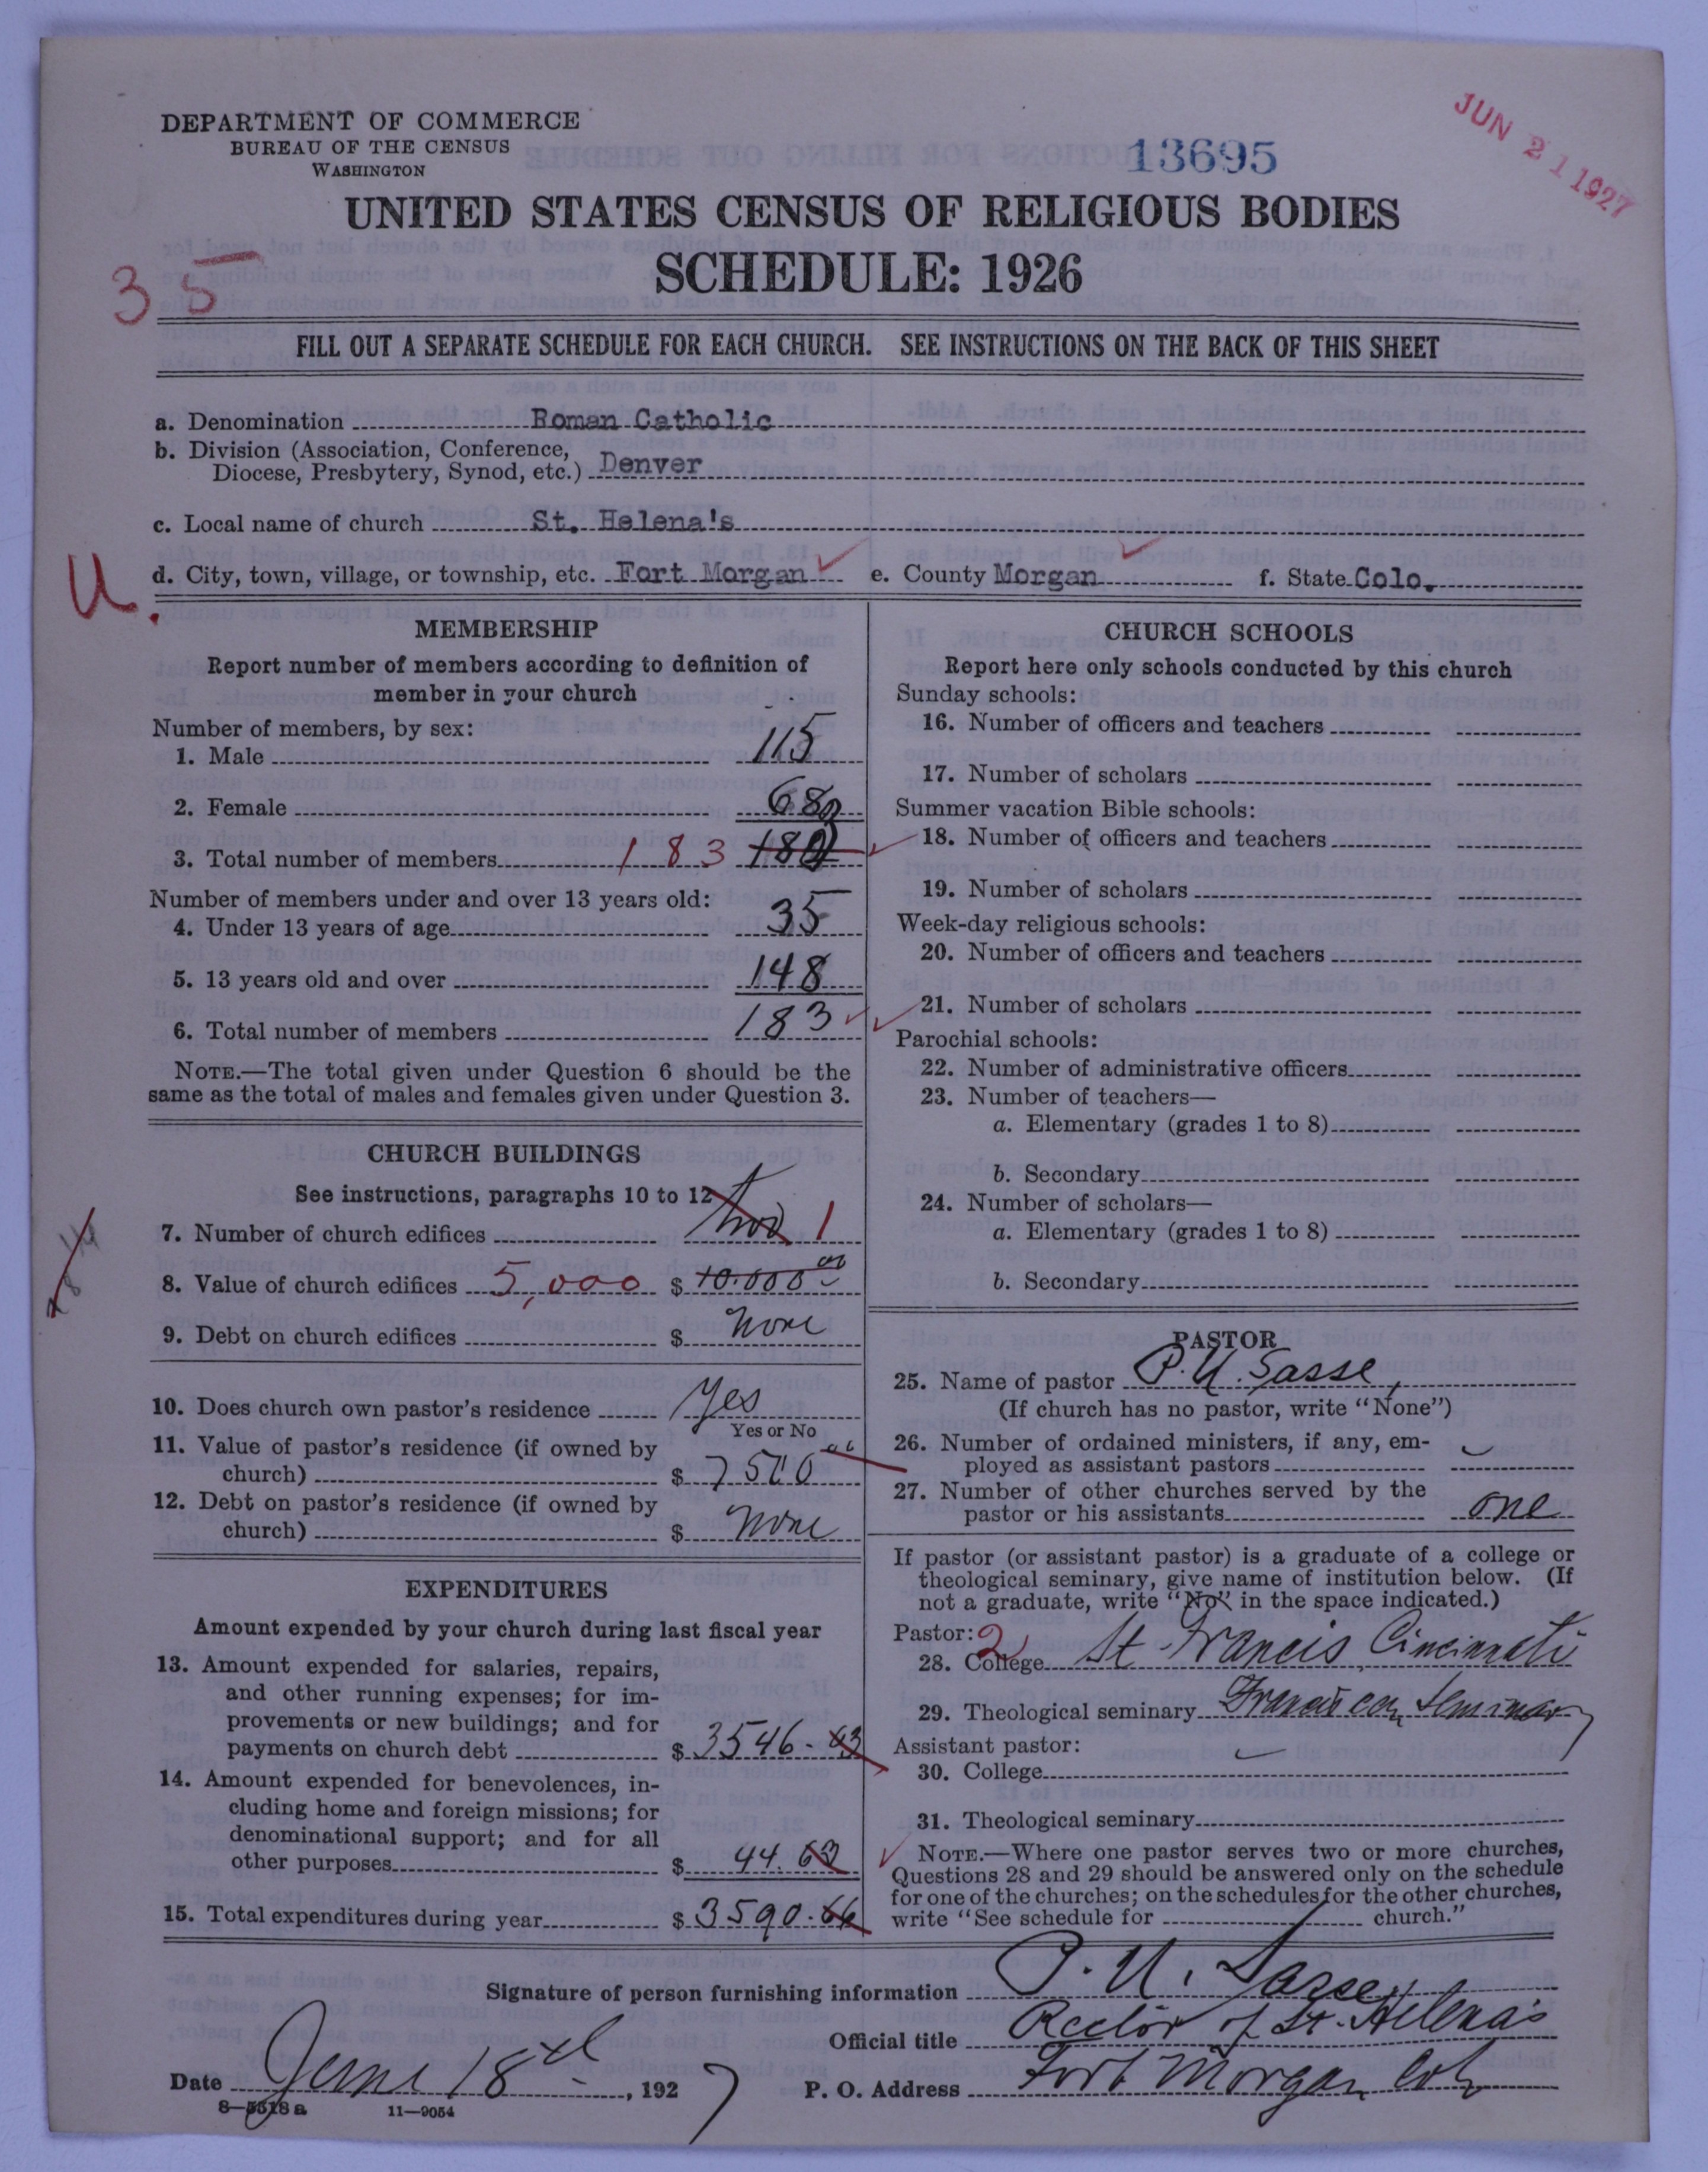 DEPARTMENT OF COMMERCE
BUREAU OF THE CENSUS
WASHINGTON
13695
JUN 21 1927
UNITED STATES CENSUS OF RELIGIOUS BODIES
SCHEDULE: 1926
35
FILL OUT A SEPARATE SCHEDULE FOR EACH CHURCH. SEE INSTRUCTIONS ON THE BACK OF THIS SHEET
a. Denomination Roman Catholic
b. Division (Association, Conference,
Diocese, Presbytery, Synod, etc.) Denver
c. Local name of church St. Helena's
U.
d. City, town, village, or township, etc. Fort Morgan e. County Morgan f. State Colo.
MEMBERSHIP
Report number of members according to definition of
member in your church
Number of members, by sex:
1. Male 115
2. Female 68
3. Total number of members 183
Number of members under and over 13 years old:
4. Under 13 years of age 35
5. 13 years old and over 148
6. Total number of members 183
NOTE.—The total given under Question 6 should be the
same as the total of males and females given under Question 3.
CHURCH BUILDINGS
See instructions, paragraphs 10 to 12
7. Number of church edifices two 1
8. Value of church edifices 5,000 $ 10.000 00
9. Debt on church edifices $ None
10. Does church own pastor's residence Yes
Yes or No
11. Value of pastor's residence (if owned by
church) $ 7500 00
12. Debt on pastor's residence (if owned by
church) $ None
EXPENDITURES
Amount expended by your church during last fiscal year
13. Amount expended for salaries, repairs,
and other running expenses; for im-
provements or new buildings; and for
payments on church debt $ 3546.63
14. Amount expended for benevolences, in-
cluding home and foreign missions; for
denominational support; and for all
other purposes $ 44.63
15. Total expenditures during year $ 3590.66
CHURCH SCHOOLS
Report here only schools conducted by this church
Sunday schools:
16. Number of officers and teachers
17. Number of scholars
Summer vacation Bible schools:
18. Number of officers and teachers
19. Number of scholars
Week-day religious schools:
20. Number of officers and teachers
21. Number of scholars
Parochial schools:
22. Number of administrative officers
23. Number of teachers—
a. Elementary (grades 1 to 8)
b. Secondary
24. Number of scholars—
a. Elementary (grades 1 to 8)
b. Secondary
PASTOR
25. Name of pastor P. U. Sasse,
(If church has no pastor, write "None")
26. Number of ordained ministers, if any, em-
ployed as assistant pastors
27. Number of other churches served by the
pastor or his assistants one
If pastor (or assistant pastor) is a graduate of a college or
theological seminary, give name of institution below. (If
not a graduate, write "No" in the space indicated.)
Pastor: 2
28. College St. Francis, Cincinnati
29. Theological seminary Franciscan Seminary
Assistant pastor:
30. College
31. Theological seminary
NOTE.—Where one pastor serves two or more churches,
Questions 28 and 29 should be answered only on the schedule
for one of the churches; on the schedules for the other churches,
write "See schedule for church."
Signature of person furnishing information P. U. Sasse
Official title Rector of St. Helena's
Date June 18th, 1927 P. O. Address Fort Morgan Colo
8—5518 a 11—9054